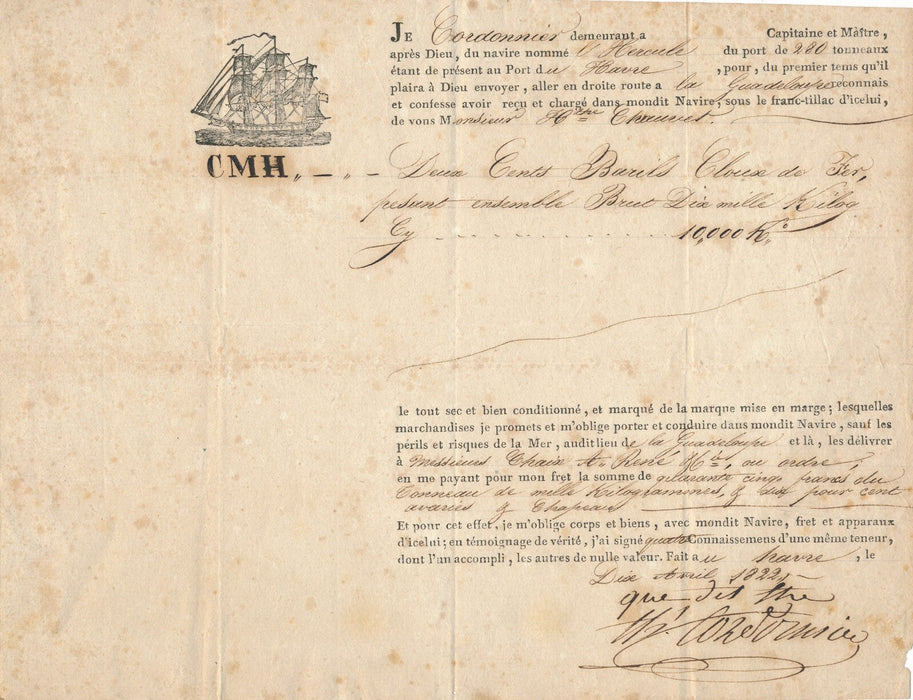 JE Cordonnier demeurant a Capitaine et Maître,
après Dieu, du navire nommé l'Hercule du port de 280 tonneaux
étant de présent au Port du Havre, pour, du premier tems qu'il
plaira à Dieu envoyer, aller en droite route a la Guadeloupe reconnais
et confesse avoir reçu et chargé dans mondit Navire, sous le franc-tillac d'icelui,
de vous Monsieur Chauvet.
CMH „ — „ — Deux Cents Barils Cloux de Fer,
pesant ensemble Brut Dix mille Kilog
Cy . . . . . . . . . . . . 10,000 K.º
le tout sec et bien conditionné, et marqué de la marque mise en marge; lesquelles
marchandises je promets et m'oblige porter et conduire dans mondit Navire, sauf les
périls et risques de la Mer, audit lieu de la Guadeloupe et là, les délivrer
à Messieurs Chaix A. René & Cie, ou ordre,
en me payant pour mon fret la somme de quarante cinq francs du
Tonneau de mille Kilogrammes, & dix pour cent
avaries & Chapeau
Et pour cet effet, je m'oblige corps et biens, avec mondit Navire, fret et apparaux
d'icelui; en témoignage de vérité, j'ai signé quatre Connaissemens d'une même teneur,
dont l'un accompli, les autres de nulle valeur. Fait au havre, le
Dix Avril 1822,—
que dit être
Cordonnier